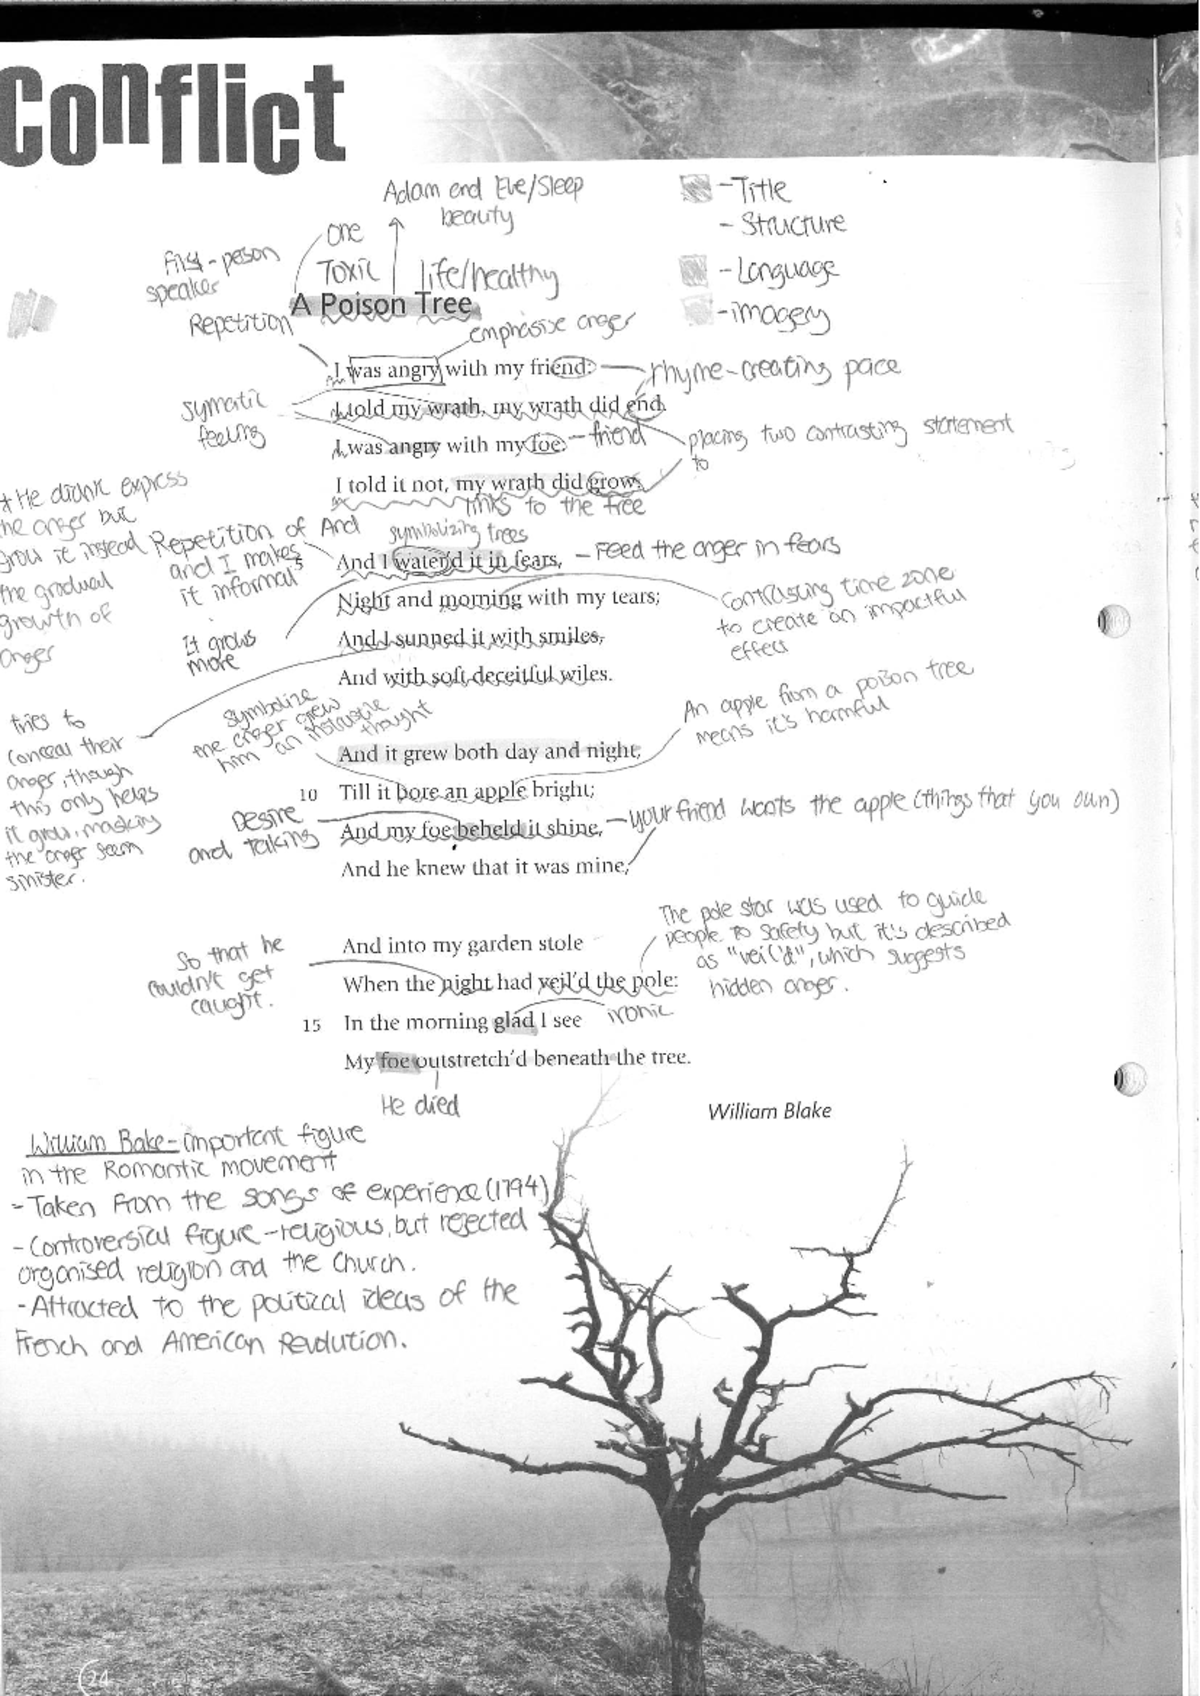 Conflict
Adam end Eve/Sleep
beauty
-Title
- Structure
-Language
-imagery
one
Toxic
life/healthy
First-peson
speaker
A Poison Tree
Repetition
emphasise anger
I was angry with my friend:
rhyme-creating pace
I told my wrath, my wrath did end.
feeling
I was angry with my foe:
-friend
placing two contrasting statement
to
I told it not, my wrath did grow.
links to the tree
* He didn't express
the anger but
grow it instead
the gradual
growth of
anger
Repetition of And
and I makes
it informal
symbolizing trees
5
And I water'd it in fears,
-Feed the anger in fears
Night and morning with my tears;
Contrasting time zone
to create an impactful
effect
It grows
more
And I sunned it with smiles,
And with soft deceitful wiles.
tries to
conceal their
anger, though
this only helps
it grow, masking
the anger seem
sinister.
symbolize
the anger grew
him an
thought
An apple from a poison tree
means it's harmful
And it grew both day and night,
10 Till it bore an apple bright;
Desire
and talking
And my foe beheld it shine,
-your friend wants the apple (things that you own)
And he knew that it was mine,
The pole star was used to guide
people to safety but it's described
as "veil'd", which suggests
hidden anger.
So that he
couldn't get
caught.
And into my garden stole
When the night had veil'd the pole:
15 In the morning glad I see
ironic
My foe outstretch'd beneath the tree.
He died
William Blake
William Bake-important figure
in the Romantic movement
-Taken from the songs of experience (1794)
-Controversial figure-religious, but rejected
organised religion and the Church.
-Attracted to the political ideas of the
French and American Revolution.
24